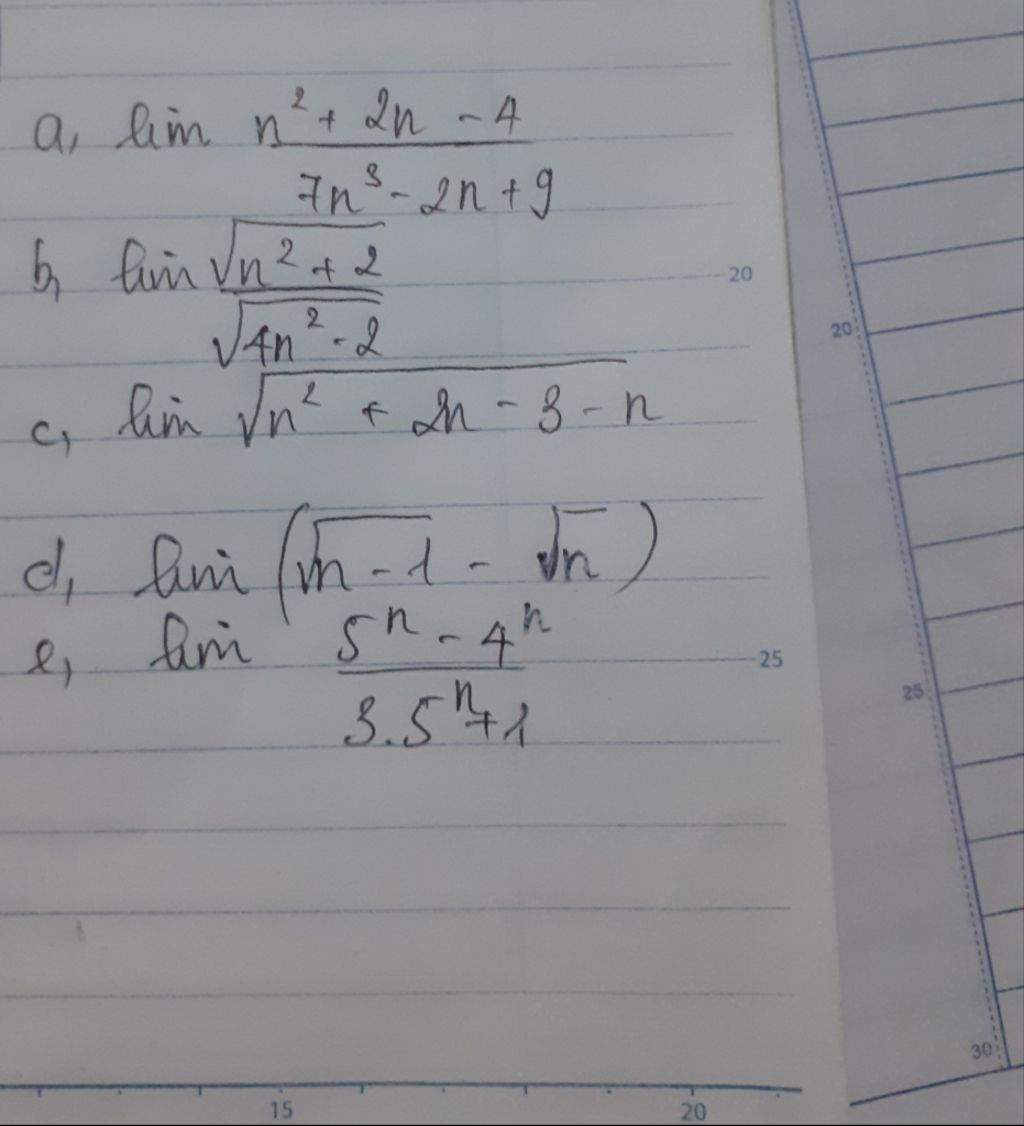 a, lim n² + 2n - 4
7n³ - 2n + 9
b, lim √n² + 2
√4n² - 2
c, lim √n² + 2n - 3 - n
d, lim (√n - 1 - √n)
e, lim 5ⁿ - 4ⁿ
3.5ⁿ + 1
20
20
25
25
30
15 20